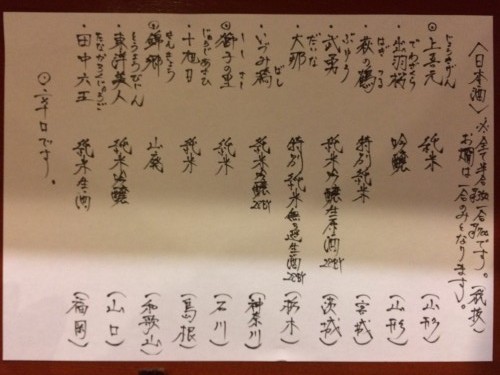 〈日本酒〉 ※全て半合 一合 です。(税抜)
お燗は一合のみとなります。
じょうきげん
◎上喜元 純米 (山形)
でわざくら
・出羽桜 吟醸 (山形)
はぎ つる
・萩の鶴 特別純米 (宮城)
ぶゆう
・武勇 純米吟醸生原酒 (茨城)
だいな
・大那 特別純米無過生酒 (栃木)
ばし
・いづみ橋 純米吟醸 (神奈川)
しし さと
・獅子の里 純米 (石川)
じゅうじあさひ
・十旭日 純米 (島根)
◎錦郷 山廃 (和歌山)
とうようびじん
・東洋美人 純米吟醸 (山口)
たなかろくじゅうご
・田中六五 純米生酒 (福岡)
◎辛口です。